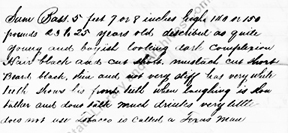 Sam Bass. 5 feet 7 or 8 inches high 140 or 150
pounds 23 to 25 years old, described as quite
young and boyish looking dark complexion
Hair black and cut short. mustach cut short
Beard black, thin and not very stiff has very white
teeth shows his front teeth when laughing is slow
talker and does talk much drinks very little
does not use tobacco is called a Texas man